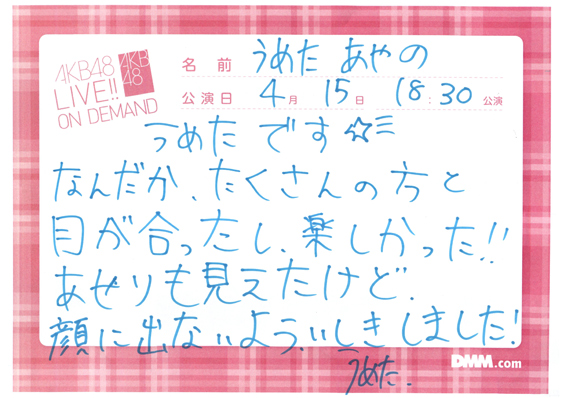 AKB48
LIVE!!
ON DEMAND
AKB
48
名 前 うめた あやの
公演日 4月 15日 18:30 公演
うめた です☆彡
なんだか、たくさんの方と
目が合ったし、楽しかった!!
あせりも見えたけど、
顔に出ないよう、いしきしました!
うめた.
DMM.com